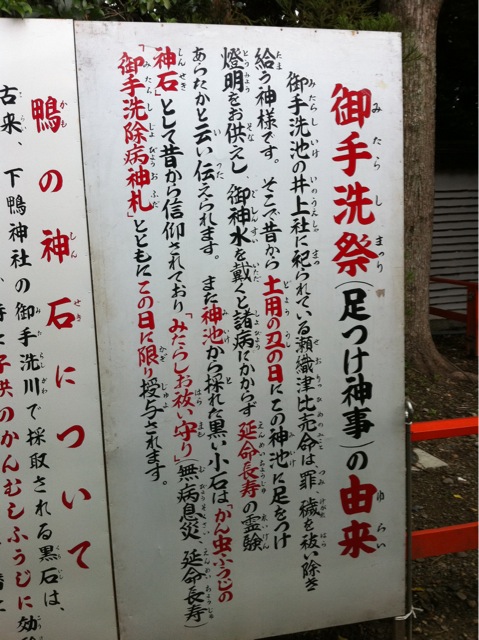 御手洗祭(足つけ神事)の由来
御手洗池の井上社に祀られている瀬織津比売命は、罪、穢を祓い除き
給う神様です。そこで昔から土用の丑の日にこの神池に足をつけ
燈明をお供えし、御神水を戴くと諸病にかからず延命長寿の霊験
あらたかと云い伝えられます。また神池から採れた黒い小石は「かん虫ふうじの
神石」として昔から信仰されており「みたらしお祓い守り」(無病息災、延命長寿)
「御手洗除病神札」とともにこの日に限り授与されます。
鴨の神石について
古来、下鴨神社の御手洗川で採取される黒石は、
子供のかんむしふうじに効